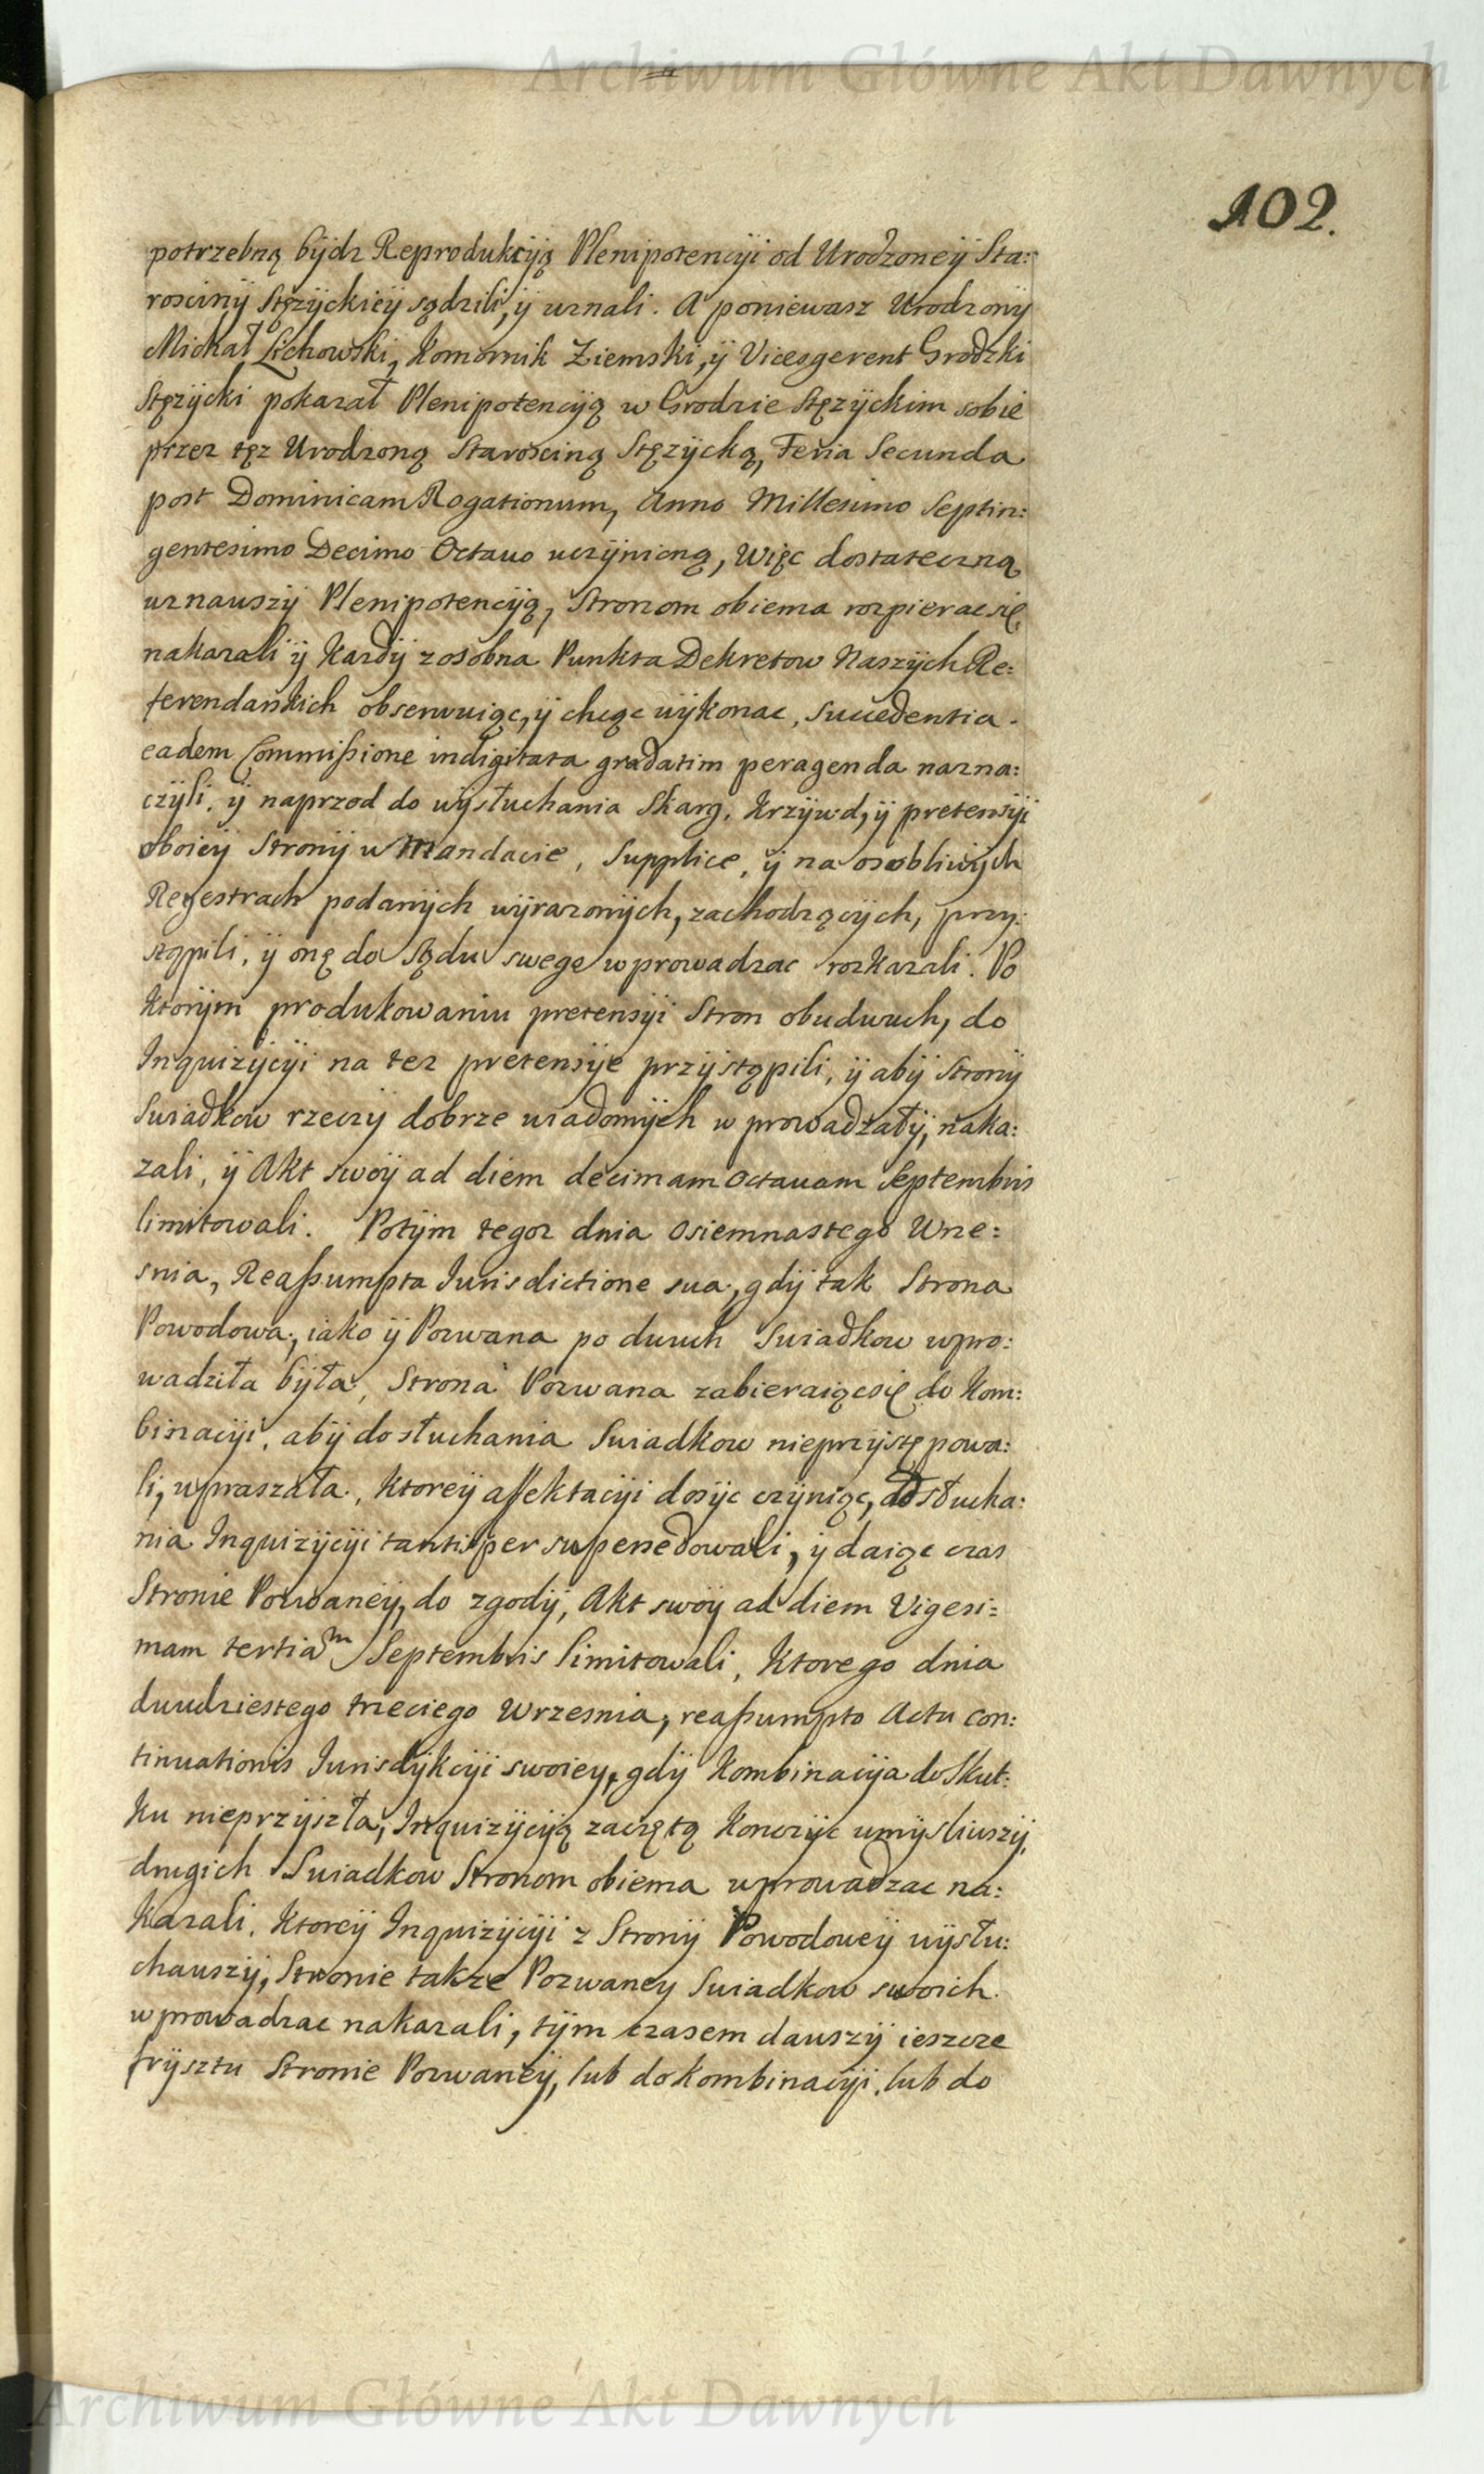 Archiwum Główne Akt Dawnych
102.
potrzebną bydz Reprodukcyią Plenipotencyi od Urodzoney Sta:
rosciny Stęzyckiey sądzili, y uznali. A poniewasz Urodzony
Michał Lichowski, Komornik Ziemski, y Vicesgerent Grodzki
Stęzycki pokazał Plenipotencyią w Grodzie Stęzyckim sobie
przez tęz Urodzoną Starościną Stęzycką, Feria Secunda
post Dominicam Rogationum, Anno Millesimo Septin:
gentesimo Decimo Octauo uczynioną, Więc dostateczną
uznauszy Plenipotencyią, Stronom obiema rozpierac się
nakazali y Kazdy zosobna Punkta Dekretow Naszych Re:
ferendarskich obserwuiąc, y chcąc wykonac, Succedentia
eadem Commißione indigitata gradatim peragenda nazna:
czyli, y naprzod do wysłuchania Skarg, Krzywd, y pretensyi
oboiey Strony w Mandacie, Supplice, y na osobliwych
Regestrach podanych wyrazonych, zachodzących, przy:
stąpili, y onę do Sądu swego wprowadzac rozkazali. Po
ktorym produkowaniu pretensyi Stron obudwuch, do
Inquizycyi na tez pretensye przystąpili, y aby Strony
Swiadkow rzeczy dobrze wiadomych wprowadzały, naka:
zali, y Akt swoy ad diem decimam Octauam Septembris
limitowali. Potym tegoz dnia Osiemnastego Wrze:
snia, Reaßumpta Jurisdictione sua, gdy tak Strona
Powodowa, iako y Pozwana po dwuch Swiadkow wpro:
wadziła była, Strona Pozwana zabieraiąc się do Kom:
binacyi, aby do słuchania Swiadkow nieprzystępowa:
li, upraszała, Ktorey affektacyi dosyc czyniąc, do słucha:
nia Inquizycyi tantisper supersedowali, y daiąc czas
Stronie Pozwaney, do zgody, Akt swoy ad diem Vigesi=
mam tertiam Septembris limitowali, Ktorego dnia
dwudziestego trzeciego Wrzesnia, reaßumpto Actu con:
tinuationis Jurisdykcyi swoiey, gdy Kombinacyia do Skut:
ku nieprzyszła, Inquizycyią zaczętą Konczyc umysliwszy,
drugich Swiadkow Stronom obiema wprowadzac na:
kazali, Ktorey Inquizycyi z Strony Powodowey wysłu:
chauszy, Stronie takze Pozwaney Swiadkow swoich
wprowadzac nakazali, tym czasem dauszy ieszcze
frysztu Stronie Pozwaney, lub do Kombinacyi, lub do
Archiwum Główne Akt Dawnych